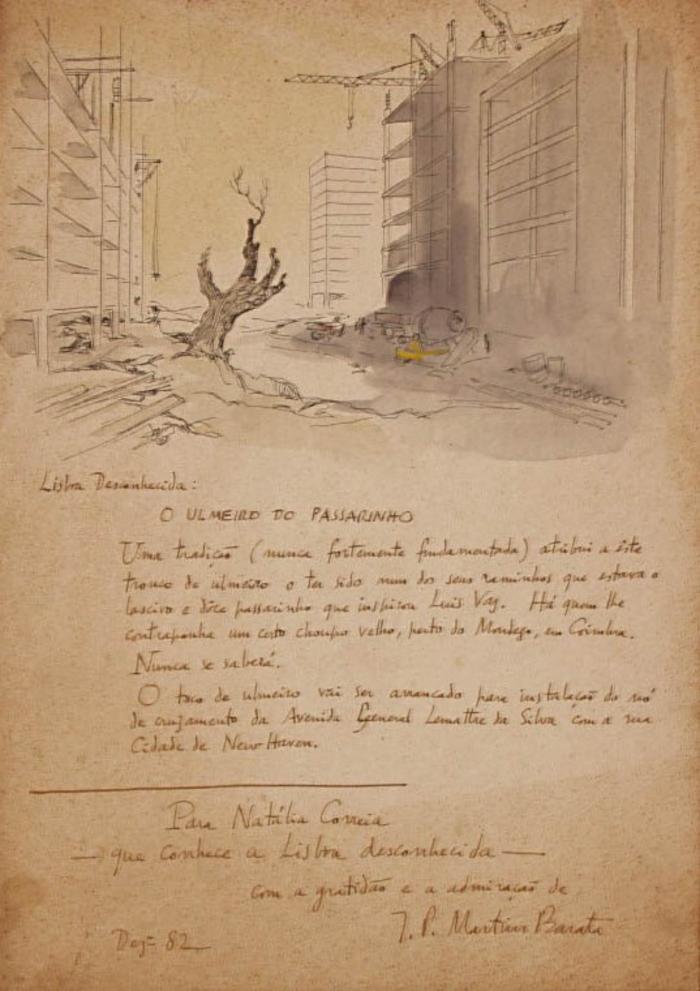 Lisboa Desconhecida:
O ULMEIRO DO PASSARINHO
Uma tradição (nunca fortemente fundamentada) atribui a êste
tronco de ulmeiro o ter sido num dos seus raminhos que estava o
lascivo e dôce passarinho que inspirou Luis Vaz. Há quem lhe
contraponha um certo choupo velho, perto do Mondego, em Coimbra.
Nunca se saberá.
O toco de ulmeiro vai ser arrancado para instalação do nó
de cruzamento da Avenida General Lemaître da Silva com a rua
Cidade de New Haven.
Para Natália Correia
— que conhece a Lisboa desconhecida —
com a gratidão e a admiração de
J. P. Martins Barata
Dez- 82